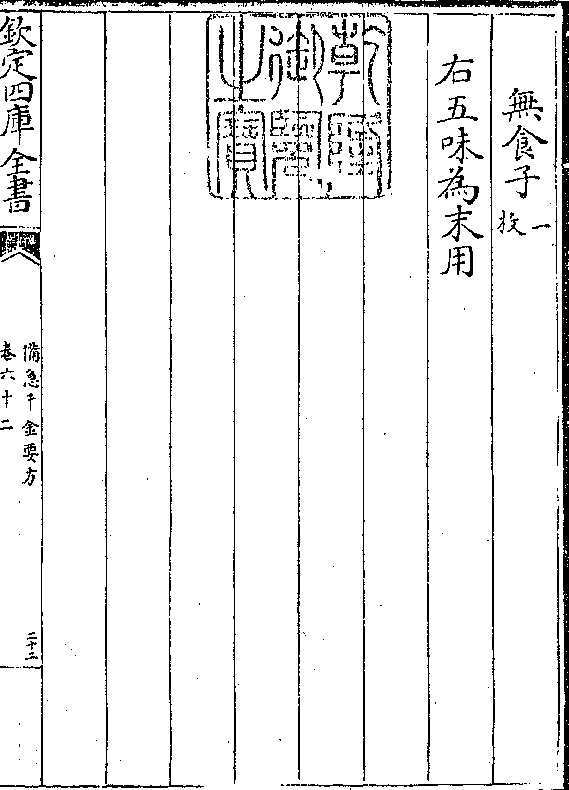 無食子一枚
右五味為末用
乾隆御覽之寶
欽定四庫全書
備急千金要方
卷六十二
二十二